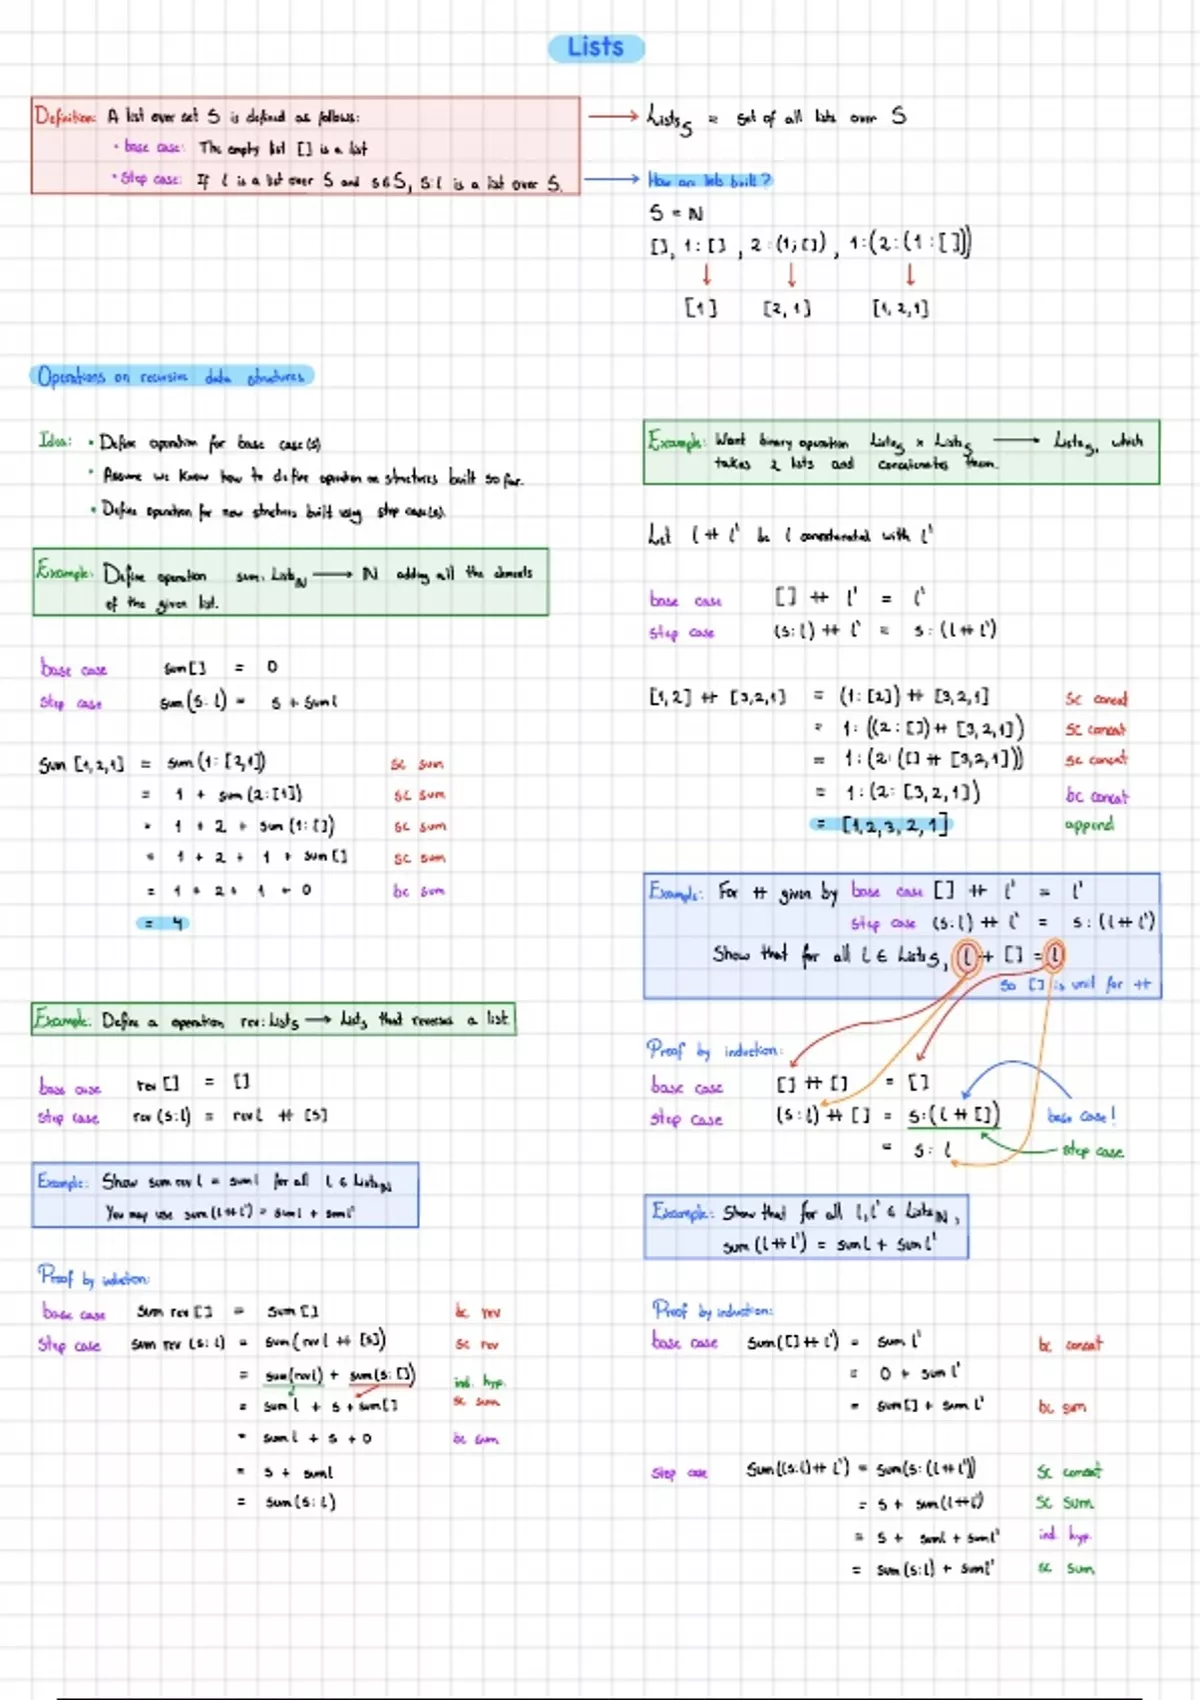 Lists
Definition: A list over set S is defined as follows:
• base case: The empty list [] is a list
• Step case: If l is a list over S and s∈S, s:l is a list over S.
Lists_S = set of all lists over S
How are lists built?
S = ℕ
[], 1:[] , 2:(1:[]) , 1:(2:(1:[]))
[1] [2,1] [1,2,1]
Operations on recursive data structures
Idea: • Define operation for base case(s)
• Assume we know how to define operation on structures built so far.
• Define operation for new structures built using step case(s).
Example: Define operation sum: Lists_ℕ ⟶ ℕ adding all the elements
of the given list.
base case sum[] = 0
step case sum(s:l) = s + sum l
Sum [1,2,1] = sum(1:[2,1]) sc sum
= 1 + sum(2:[1]) sc sum
= 1 + 2 + sum(1:[]) sc sum
= 1 + 2 + 1 + sum[] sc sum
= 1 + 2 + 1 + 0 bc sum
= 4
Example: Define a operation rev: Lists_S ⟶ Lists_S that reverses a list
base case rev [] = []
step case rev (s:l) = rev l ++ [s]
Example: Show sum rev l = sum l for all l ∈ Lists_ℕ
You may use sum(l++l') = sum l + sum l'
Proof by induction:
base case sum rev [] = sum [] bc rev
step case sum rev (s:l) = sum(rev l ++ [s]) sc rev
= sum(rev l) + sum(s:[]) ind. hyp.
= sum l + s + sum[] sc sum
= sum l + s + 0 bc sum
= s + sum l
= sum(s:l)
Example: Want binary operation Lists_S × Lists_S ⟶ Lists_S, which
takes 2 lists and concatenates them.
Let l ++ l' be l concatenated with l'
base case [] ++ l' = l'
step case (s:l) ++ l' = s:(l ++ l')
[1,2] ++ [3,2,1] = (1:[2]) ++ [3,2,1] sc concat
= 1:((2:[]) ++ [3,2,1]) sc concat
= 1:(2:([] ++ [3,2,1])) sc concat
= 1:(2:[3,2,1]) bc concat
= [1,2,3,2,1] append
Example: For ++ given by base case [] ++ l' = l'
step case (s:l) ++ l' = s:(l ++ l')
Show that for all l ∈ Lists_S, l ++ [] = l
so [] is unit for ++
Proof by induction:
base case [] ++ [] = []
step case (s:l) ++ [] = s:(l ++ []) base case!
= s:l step case
Example: Show that for all l,l' ∈ Lists_ℕ,
sum(l++l') = sum l + sum l'
Proof by induction:
base case sum([]++l') = sum l' bc concat
= 0 + sum l'
= sum[] + sum l' bc sum
step case sum((s:l)++l') = sum(s:(l++l')) sc concat
= s + sum(l++l') sc sum
= s + sum l + sum l' ind. hyp.
= sum(s:l) + sum l' sc sum